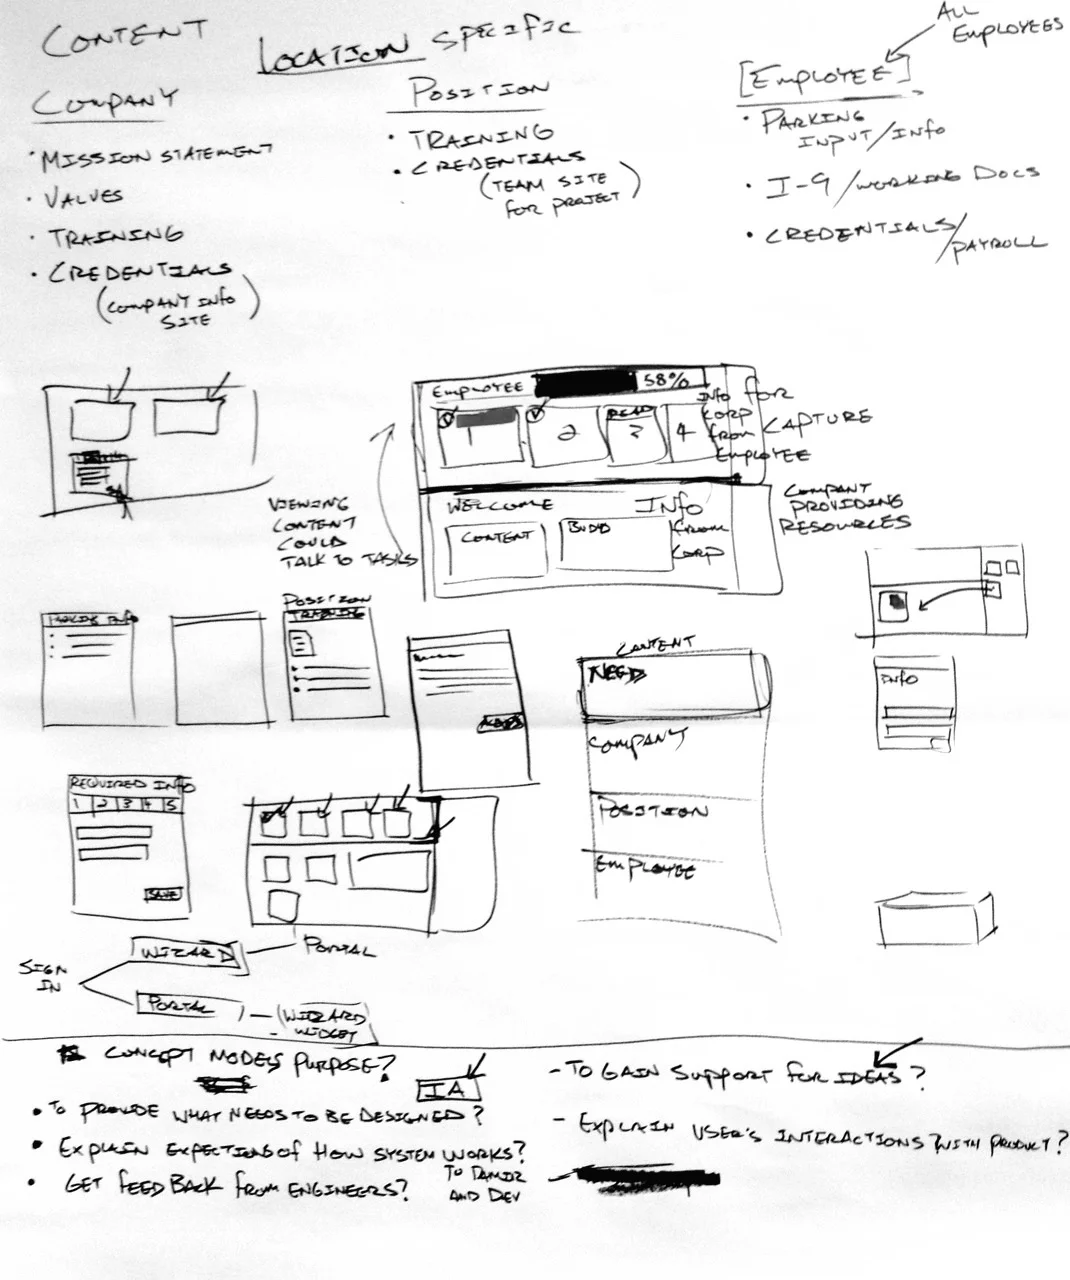 CONTENT
LOCATION SPECIFIC
ALL
EMPLOYEES
COMPANY
• MISSION STATEMENT
• VALUES
• TRAINING
• CREDENTIALS
(COMPANY INFO
SITE)
POSITION
• TRAINING
• CREDENTIALS
(TEAM SITE
FOR PROJECT)
[EMPLOYEE]
• PARKING
INPUT/INFO
• I-9/WORKING DOCS
• CREDENTIALS/
PAYROLL
EMPLOYEE 58%
1 2 READ 3 4
INFO FOR
KORP
FROM
EMPLOYEE
CAPTURE
WELCOME
CONTENT
INFO
FROM
CORP
COMPANY
PROVIDING
RESOURCES
VIEWING
CONTENT
COULD
TALK TO TASKS
PARKING INFO
POSITION
TRAINING
CONTENT
NEED
COMPANY
POSITION
EMPLOYEE
INFO
REQUIRED INFO
1 2 3 4 5
SAVE
SIGN
IN
WIZARD
PORTAL
PORTAL
WIZARD
WIDGET
CONCEPT MODELS PURPOSE?
IA
• TO PROVIDE WHAT NEEDS TO BE DESIGNED?
• EXPLAIN EXPECTIONS OF HOW SYSTEM WORKS?
• GET FEEDBACK FROM ENGINEERS?
TO TAMIR
AND DEV
- TO GAIN SUPPORT FOR IDEAS?
- EXPLAIN USER'S INTERACTIONS? WITH PRODUCT?